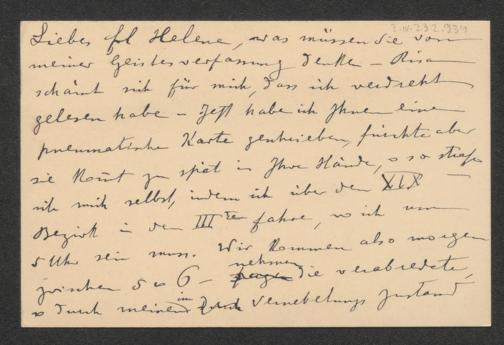 Liebes frl Helene, was müssen Sie von
meiner Geistesverfassung denken – Risa
schämt sich für mich, dass ich verdreht
gelesen habe – Jetzt habe ich Ihnen eine
pneumatische Karte geschrieben, fürchte aber
sie kommt zu spät in Ihre Hände, so strafe
ich mich selbst, indem ich über den XIX
Bezirk in den III ten fahre, wo ich um
5 Uhr sein muss. Wir kommen also morgen
zwischen 5 u 6 – nehmen Sie verabredete,
durch meinen im Vernebelungs zustand